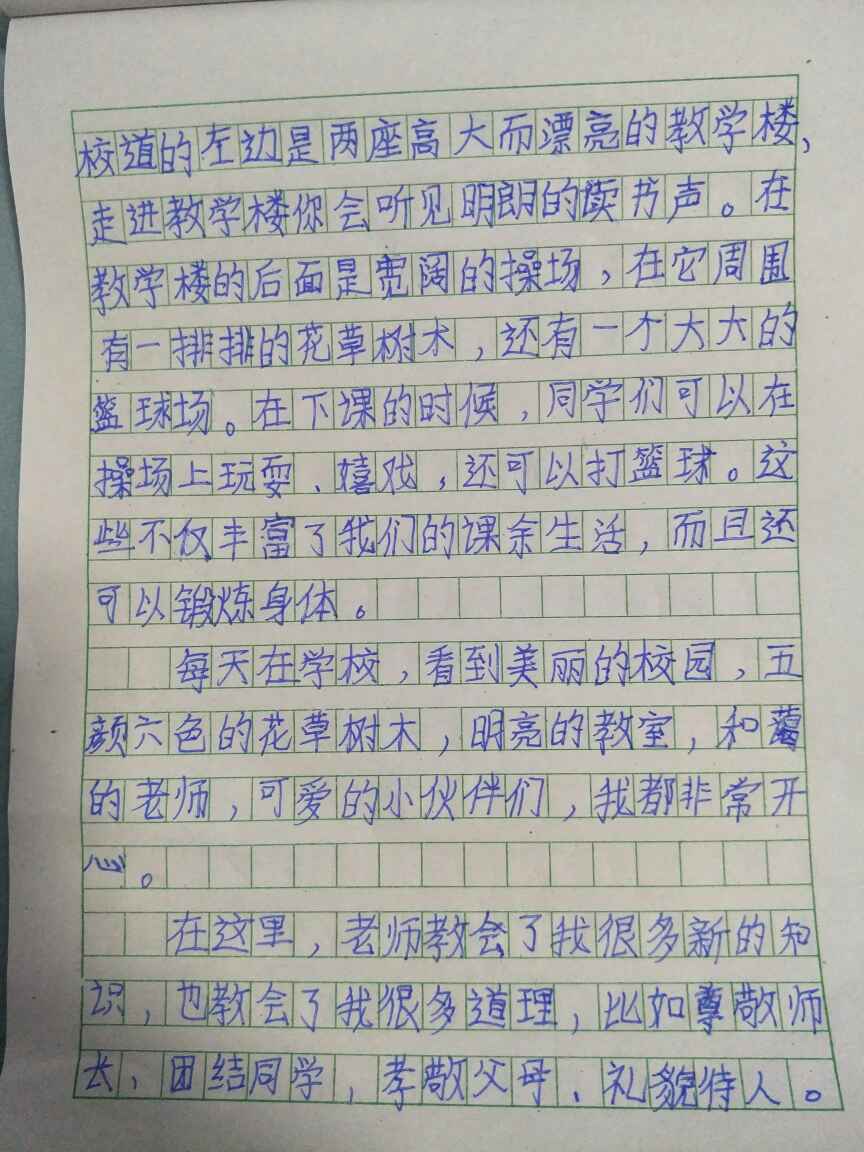 校道的左边是两座高大而漂亮的教学楼，
走进教学楼你会听见明朗的读书声。在
教学楼的后面是宽阔的操场，在它周围
有一排排的花草树木，还有一个大大的
篮球场。在下课的时候，同学们可以在
操场上玩耍、嬉戏，还可以打篮球。这
些不仅丰富了我们的课余生活，而且还
可以锻炼身体。
每天在学校，看到美丽的校园，五
颜六色的花草树木，明亮的教室，和蔼
的老师，可爱的小伙伴们，我都非常开
心。
在这里，老师教会了我很多新的知
识，也教会了我很多道理，比如尊敬师
长、团结同学，孝敬父母、礼貌待人。